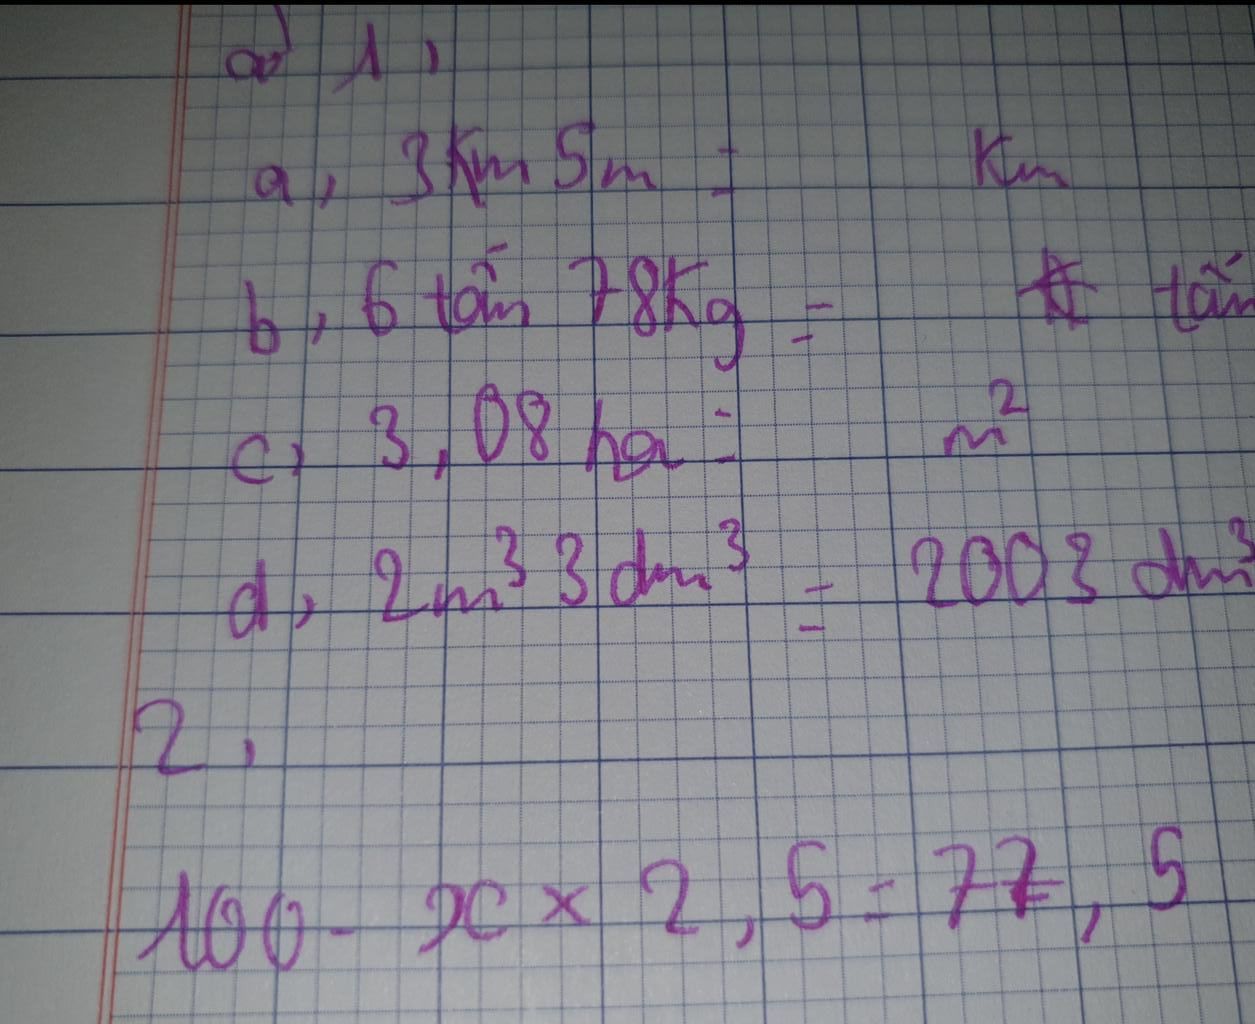 1,
a, 3Km 5m = Km
b, 6 tấn 78Kg = tấn
c, 3,08 ha = m²
d, 2m³ 3dm³ = 2003 dm³
2,
100 - x × 2,5 = 77,5